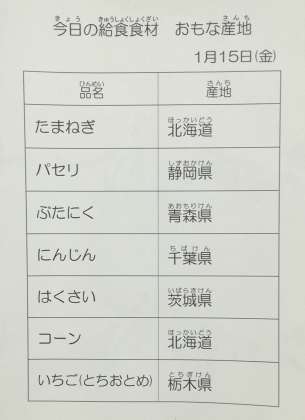 今日の給食食材　おもな産地
1月15日(金)
品名　産地
たまねぎ　北海道
パセリ　静岡県
ぶたにく　青森県
にんじん　千葉県
はくさい　茨城県
コーン　北海道
いちご(とちおとめ)　栃木県